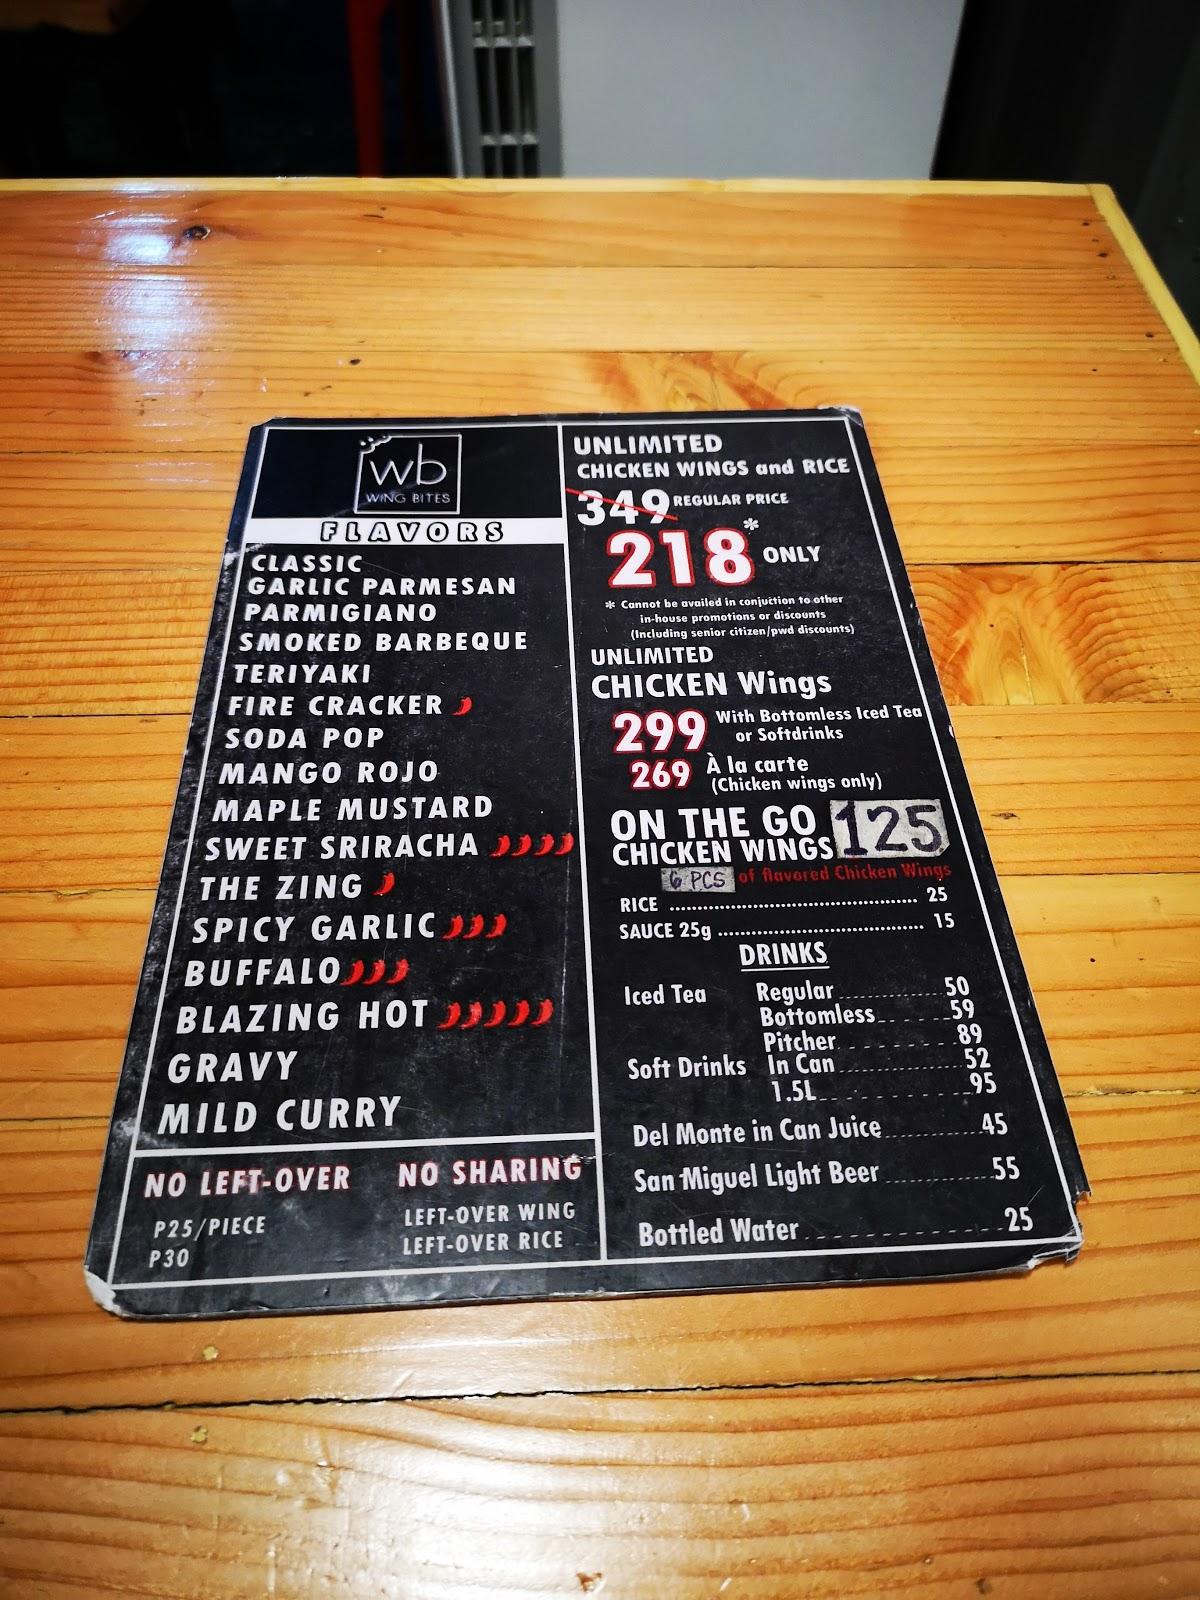 wb
WING BITES
FLAVORS
CLASSIC
GARLIC PARMESAN
PARMIGIANO
SMOKED BARBEQUE
TERIYAKI
FIRE CRACKER
SODA POP
MANGO ROJO
MAPLE MUSTARD
SWEET SRIRACHA
THE ZING
SPICY GARLIC
BUFFALO
BLAZING HOT
GRAVY
MILD CURRY
NO LEFT-OVER NO SHARING
P25/PIECE LEFT-OVER WING
P30 LEFT-OVER RICE
UNLIMITED
CHICKEN WINGS and RICE
349 REGULAR PRICE
218* ONLY
* Cannot be availed in conjuction to other
in-house promotions or discounts
(Including senior citizen/pwd discounts)
UNLIMITED
CHICKEN Wings
299 With Bottomless Iced Tea
or Softdrinks
269 À la carte
(Chicken wings only)
ON THE GO 125
CHICKEN WINGS
6 PCS of flavored Chicken Wings
RICE 25
SAUCE 25g 15
DRINKS
Iced Tea Regular 50
Bottomless 59
Pitcher 89
Soft Drinks In Can 52
1.5L 95
Del Monte in Can Juice 45
San Miguel Light Beer 55
Bottled Water 25